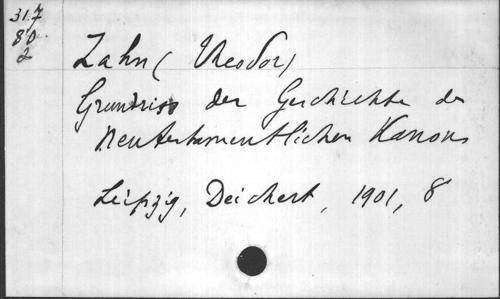 317
80
2
Zahn (Theodor)
Grundriss der Geschichte des
Neutestamentlichen Kanons
Leipzig, Deichert, 1901, 8